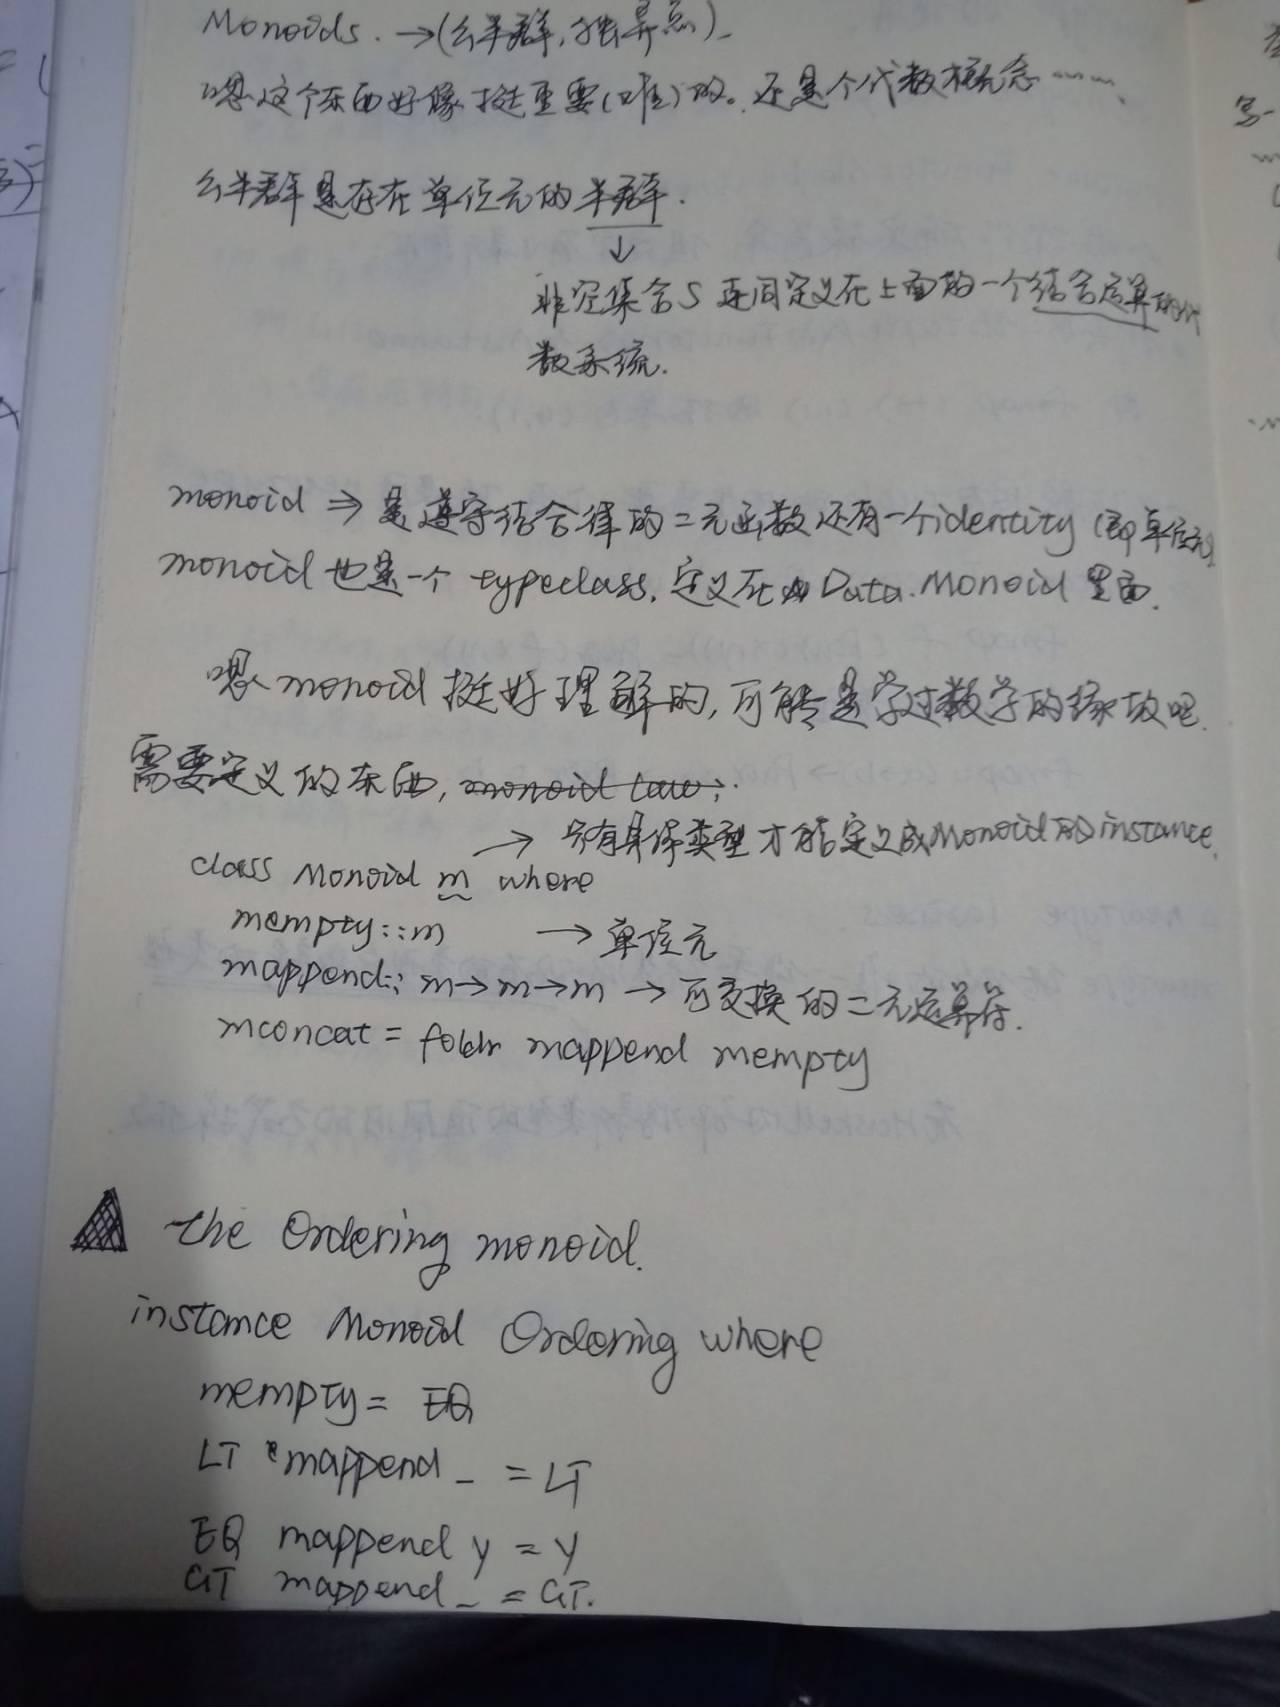 Monoids. →(幺半群, 独异点).
嗯这个东西好像挺重要(难)的。还是个代数概念……
幺半群是存在单位元的半群.
↓
非空集合S 连同定义在上面的一个结合运算的代
数系统.
monoid ⇒ 是遵守结合律的二元函数还有一个identity (即单位元)
monoid 也是一个 typeclass, 定义在 Data.Monoid 里面.
嗯 monoid 挺好理解的, 可能是学过数学的缘故吧.
需要定义的东西, monoid law:
→ 只有具体类型才能定义成Monoid的instance.
class Monoid m where
mempty::m → 单位元
mappend:: m→m→m → 可交换的二元运算符.
mconcat = foldr mappend mempty
the Ordering monoid.
instance Monoid Ordering where
mempty = EQ
LT `mappend _ = LT
EQ mappend y = y
GT mappend _ = GT.